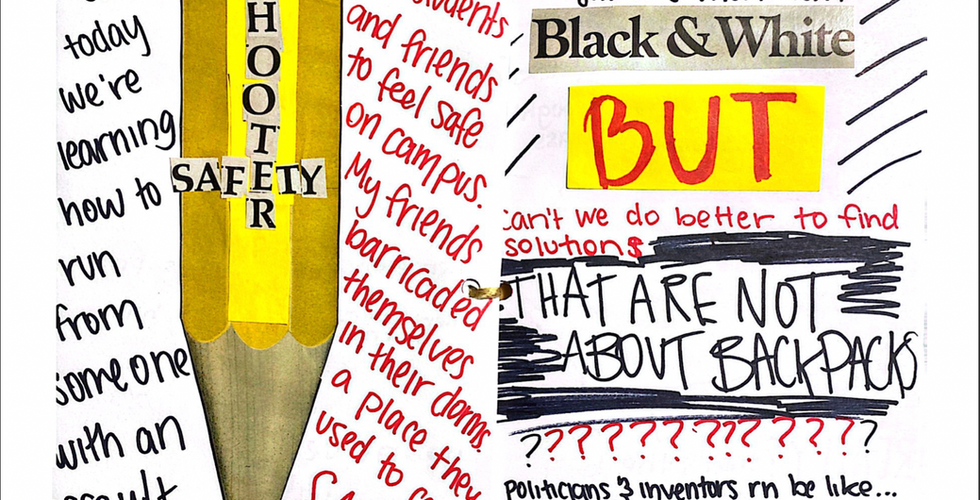 today
we're
learning
how to
run
from
someone
with an
SHOOTER
SAFETY
students
and friends
to feel safe
on campus.
My friends
barricaded
themselves
in their dorms.
a place they
used to
Black & White
BUT
can't we do better to find
solutions
THAT ARE NOT
ABOUT BACKPACKS
?????????????
Politicians & inventors rn be like...